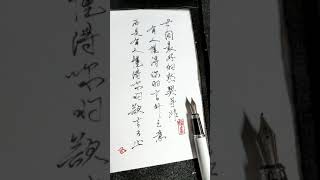 世间最好的默契并非
有人懂得你的言外之意
而是有人懂得你的欲言又止